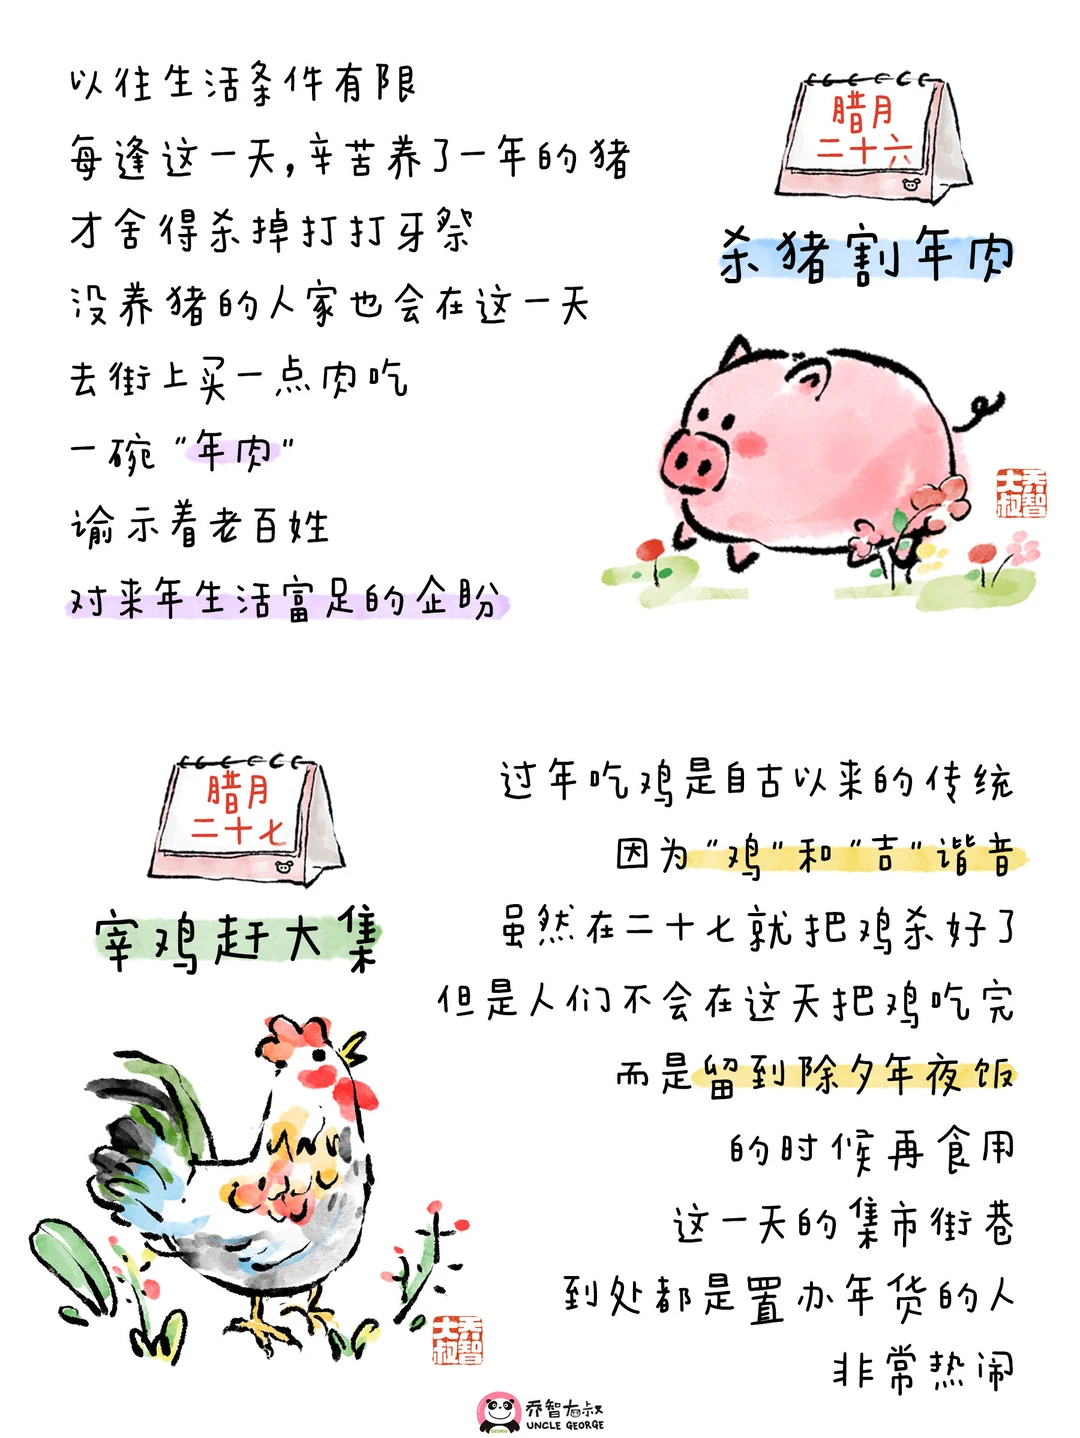 以往生活条件有限
每逢这一天,辛苦养了一年的猪
才舍得杀掉打打牙祭
没养猪的人家也会在这一天
去街上买一点肉吃
一碗"年肉"
谕示着老百姓
对来年生活富足的企盼
腊月
二十六
杀猪割年肉
乔智
大叔
腊月
二十七
宰鸡赶大集
过年吃鸡是自古以来的传统
因为"鸡"和"吉"谐音
虽然在二十七就把鸡杀好了
但是人们不会在这天把鸡吃完
而是留到除夕年夜饭
的时候再食用
这一天的集市街巷
到处都是置办年货的人
非常热闹
乔智
大叔
GEORGE
乔智大叔
UNCLE GEORGE